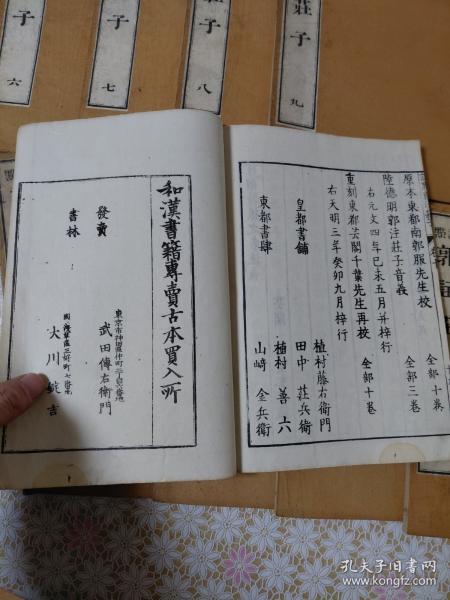 子
六
子
七
子
八
莊子
九
原本東都南郭服先生校 全部十卷
陸德明郭注莊子音義 全部三卷
右元文四年己未五月并梓行
重刻東都芸閣千葉先生再校 全部十卷
右天明三年癸卯九月梓行
皇都書鋪
植村藤右衛門
田中莊兵衛
植村善六
東都書肆
山崎金兵衛
和漢書籍專賣古本買入所
發賣
書林
東京市神田區仲町二丁目
武田傳右衛門
大川錠吉
孔夫子旧书网
www.kongfz.com